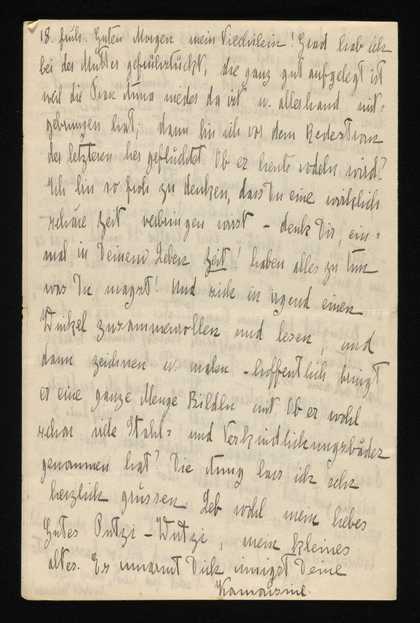 18. früh. Guten Morgen mein Friedilein! Grad hab ich
bei der Mutter gefrühstückt, die ganz gut aufgelegt ist
weil die Frau Anna wieder da ist u. allerhand mit-
gebrungen hat, dann bin ich vor dem Redestrom
der letzteren her geflüchtet. Ob er heute rodeln wird?
Ich bin so froh zu denken, dass Du eine wirklich
schöne Zeit verbringen wirst – denk Dir, ein-
mal in Deinem Leben Zeit! haben alles zu tun
was Du magst! Und sich in irgend einen
Winkel zusammenrollen und lesen, und
dann zeichnen u. malen – hoffentlich bringt
er eine ganze Menge Bilder mit. Ob er wohl
schon viele Stahl- und Verkindlichungsbäder
genommen hat? Die Anny lass ich sehr
herzlich grüssen. Leb wohl mein liebes
Gutes Putzi – Wutzi, mein kleines
altes. Es umarmt Dich innigst Deine